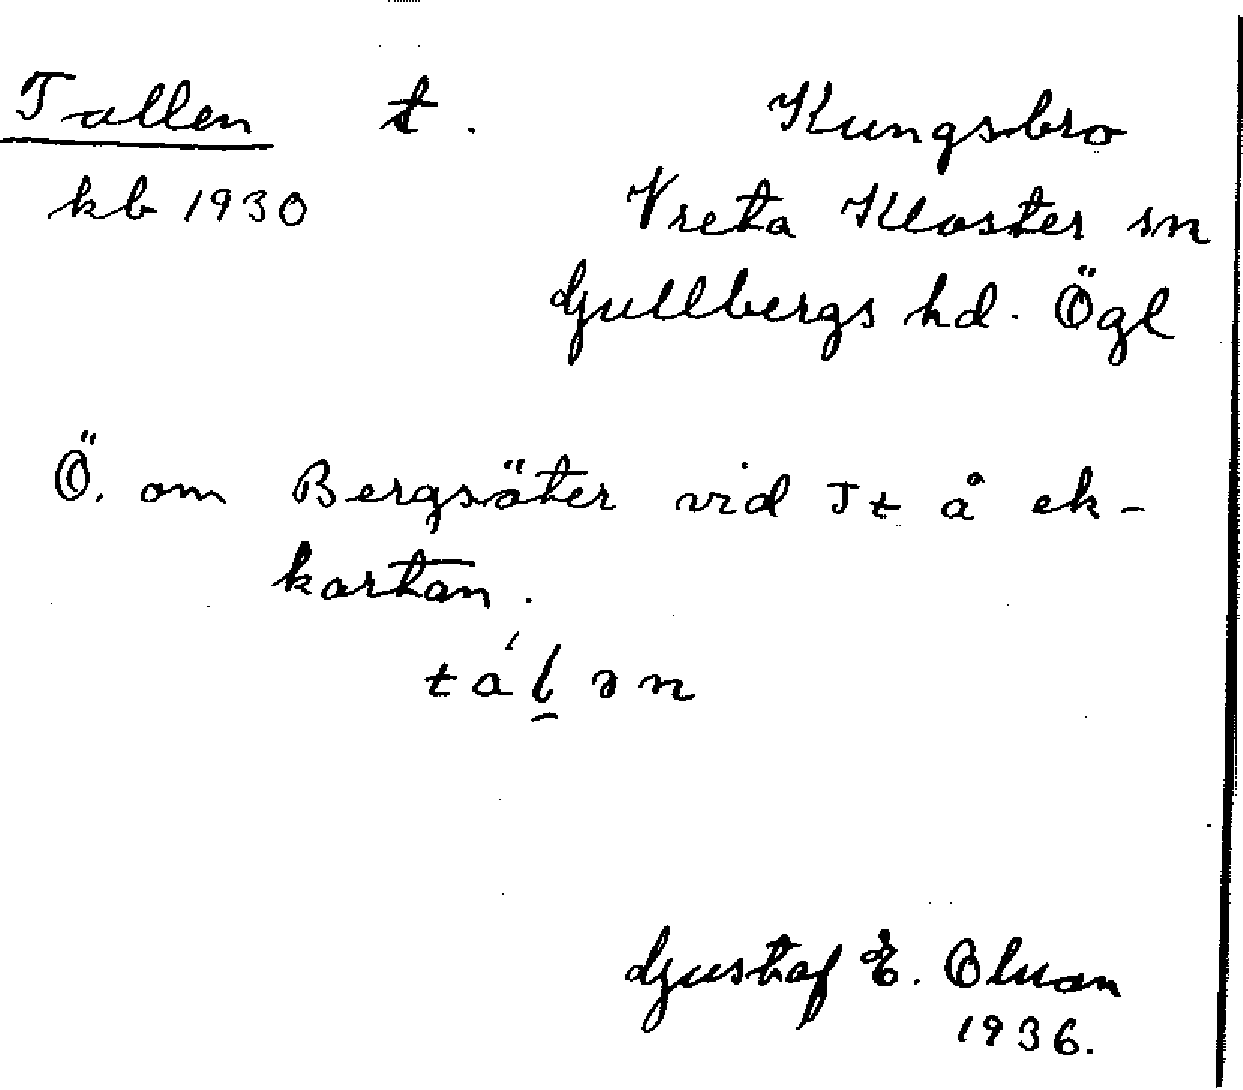 Tallen t. Kungsbro
kb 1930 Vreta Kloster sn
Gullbergs hd. Ögl
Ö. om Bergsäter vid Tt å ek-
kartan.
tálən
Gustaf E. Olson
1936.